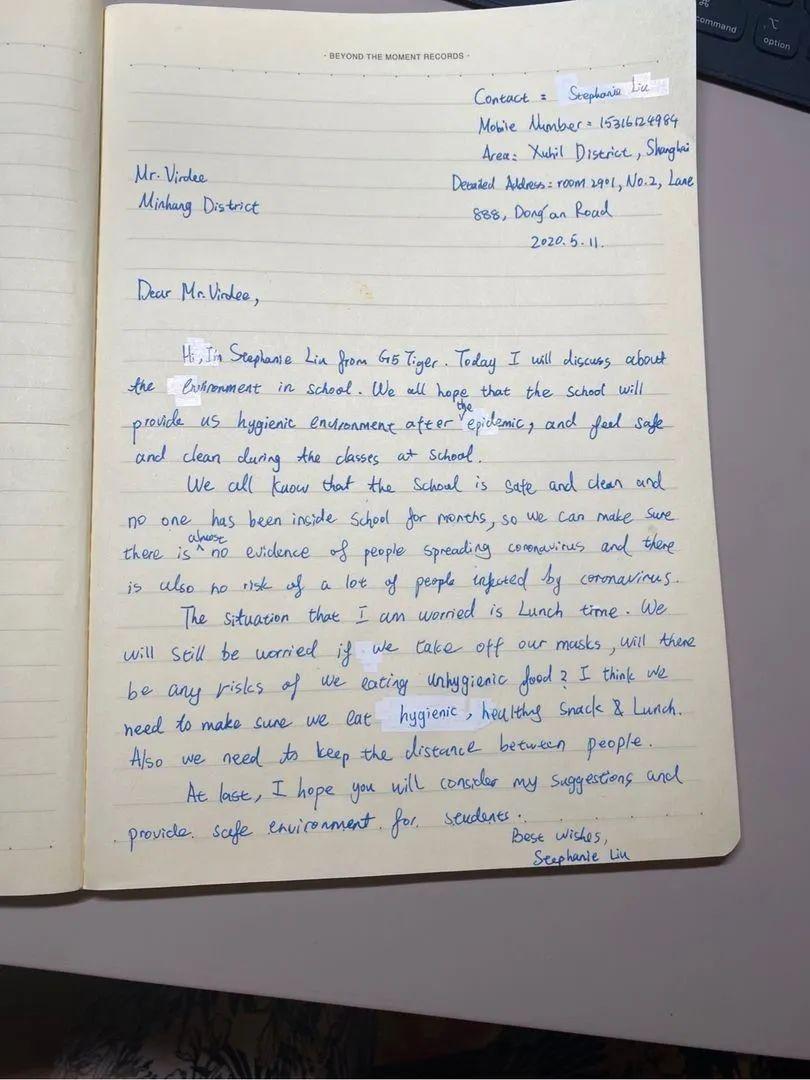 command
option
- BEYOND THE MOMENT RECORDS -
Contact : Stephanie Liu
Mobile Number: 15316124984
Area: Xuhil District, Shanghai
Mr. Virdee
Detailed Address: room 2901, No.2, Lane
Minhang District
888, Dong'an Road
2020.5.11.
Dear Mr. Virdee,
Hi, I'm Stephanie Liu from G5 Tiger. Today I will discuss about
the environment in school. We all hope that the school will
provide us hygienic environment after the epidemic, and feel safe
and clean during the classes at school.
We all know that the school is safe and clean and
no one has been inside school for months, so we can make sure
there is almost no evidence of people spreading coronavirus and there
is also no risk of a lot of people infected by coronavirus.
The situation that I am worried is Lunch time. We
will still be worried if we take off our masks, will there
be any risks of we eating unhygienic food? I think we
need to make sure we eat hygienic, healthy snack & Lunch.
Also we need to keep the distance between people.
At last, I hope you will consider my suggestions and
provide safe environment for students.
Best wishes,
Stephanie Liu